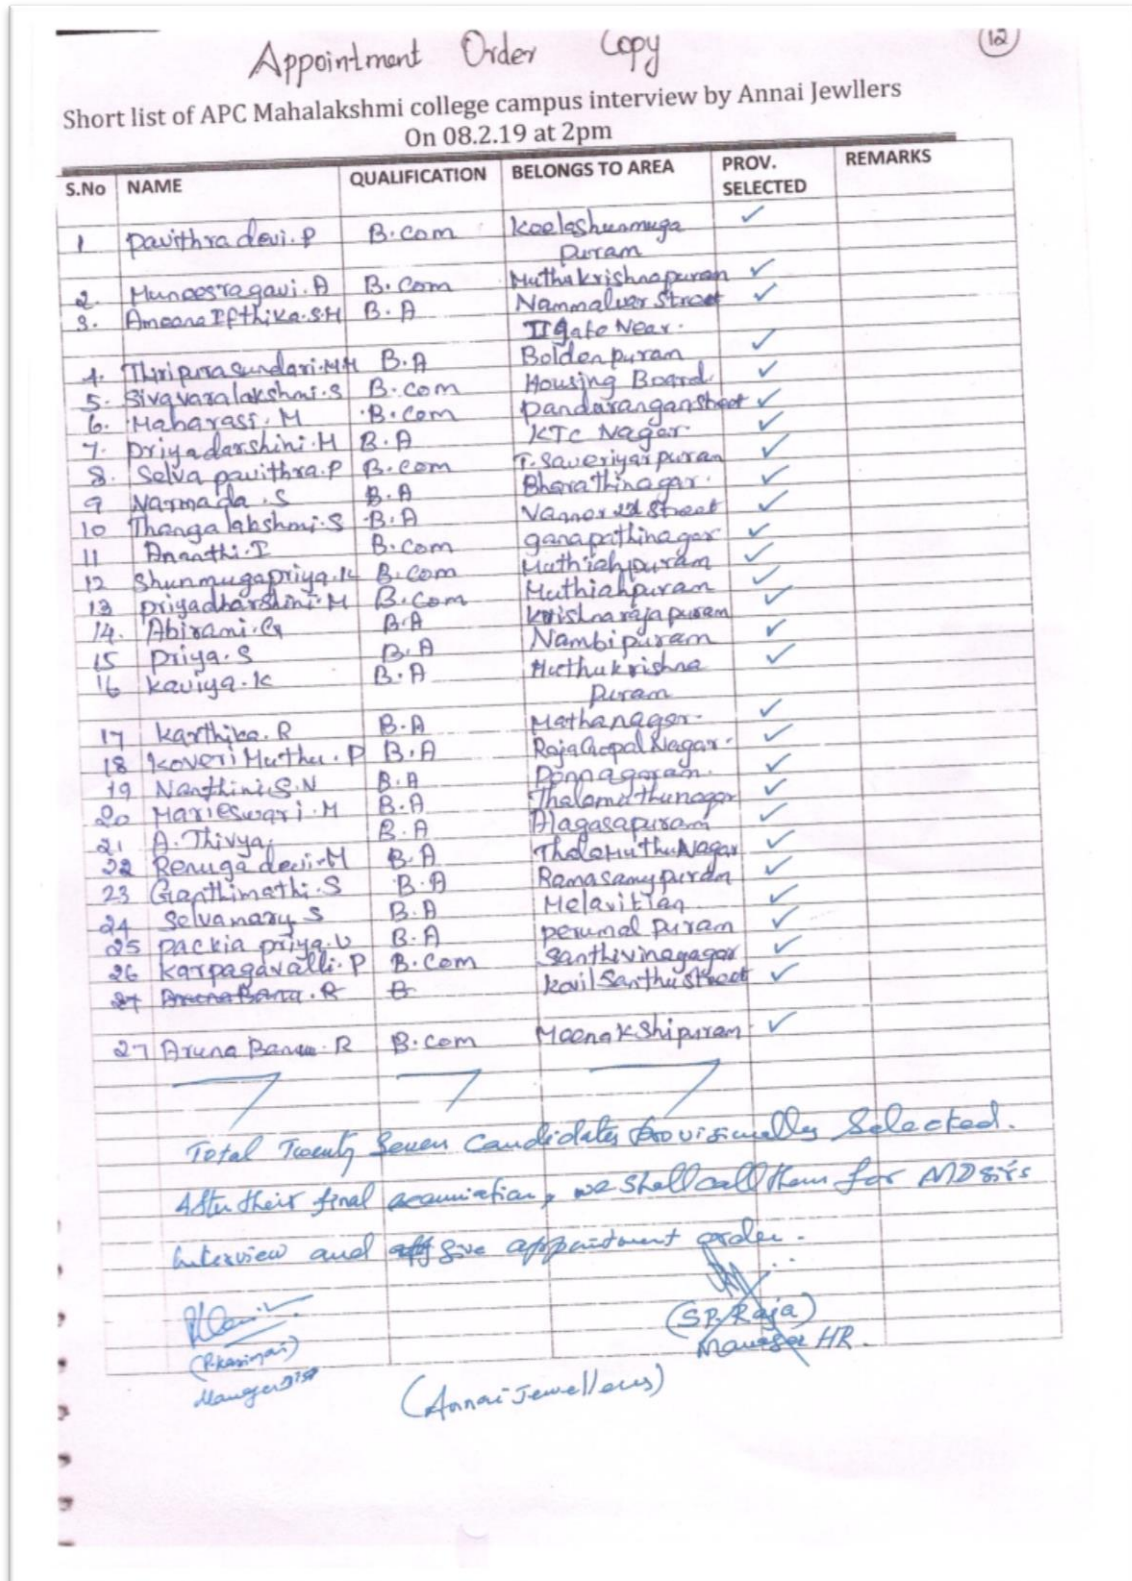 Appointment Order Copy
12
Short list of APC Mahalakshmi college campus interview by Annai Jewllers
On 08.2.19 at 2pm
S.No NAME QUALIFICATION BELONGS TO AREA PROV. SELECTED REMARKS
1 Pavithra devi.P B.Com Keelashunmuga ✓
Puram
2. Muneesragavi.A B.Com Muthukrishnapuram ✓
3. Ameena Ifthika.S.M B.A Nammalvar Street ✓
II gate Near.
4. Thiripurasundari.M.M B.A Boldenpuram ✓
5. Sivavaralakshmi.S B.Com Housing Board. ✓
6. Maharasi.M B.Com Pandarangan Street ✓
7. Priyadarshini.M B.A KTC Nagar. ✓
8. Selva pavithra.P B.Com T. Saveriyarpuram ✓
9 Narmada.S B.A Bharathinagar. ✓
10 Thangalakshmi.S B.A Vannar 2nd Street ✓
11 Ananthi.I B.Com ganapathinagar ✓
12 Shunmugapriya.K B.Com Muthiahpuram ✓
13 Priyadharshini.M B.Com Muthiahpuram ✓
14. Abirami.G B.A Krishnarajapuram ✓
15 Priya.S B.A Nambipuram ✓
16 Kaviya.K B.A Muthukrishna ✓
Puram
17 Karthika.R B.A Mathanagar. ✓
18 Koveri Muthu.P B.A RajaGopal Nagar. ✓
19 Nanthini.S.N B.A Ponnagaram. ✓
20 Marieswari.M B.A Thalamuthunagar ✓
21 A.Thivya B.A Alagasapuram ✓
22 Renuga devi.M B.A ThalaMuthuNagar ✓
23 Ganthimathi.S B.A Ramasamypuram ✓
24 Selvamary S B.A Melavittan. ✓
25 Packia priya.U B.A perumal Puram ✓
26 Karpagavalli.P B.Com Santhivinayagar ✓
27 Aruna Banu.R B Kovil Santhu Street ✓
27 Aruna Banu.R B.Com Meenakshipuram ✓
Total Twenty Seven Candidates provisionally Selected.
After their final examination, we shall call them for MD sir's
Interview and give appointment order.
(S.P. Raja)
Manager HR.
Manager
(Annai Jewellers)